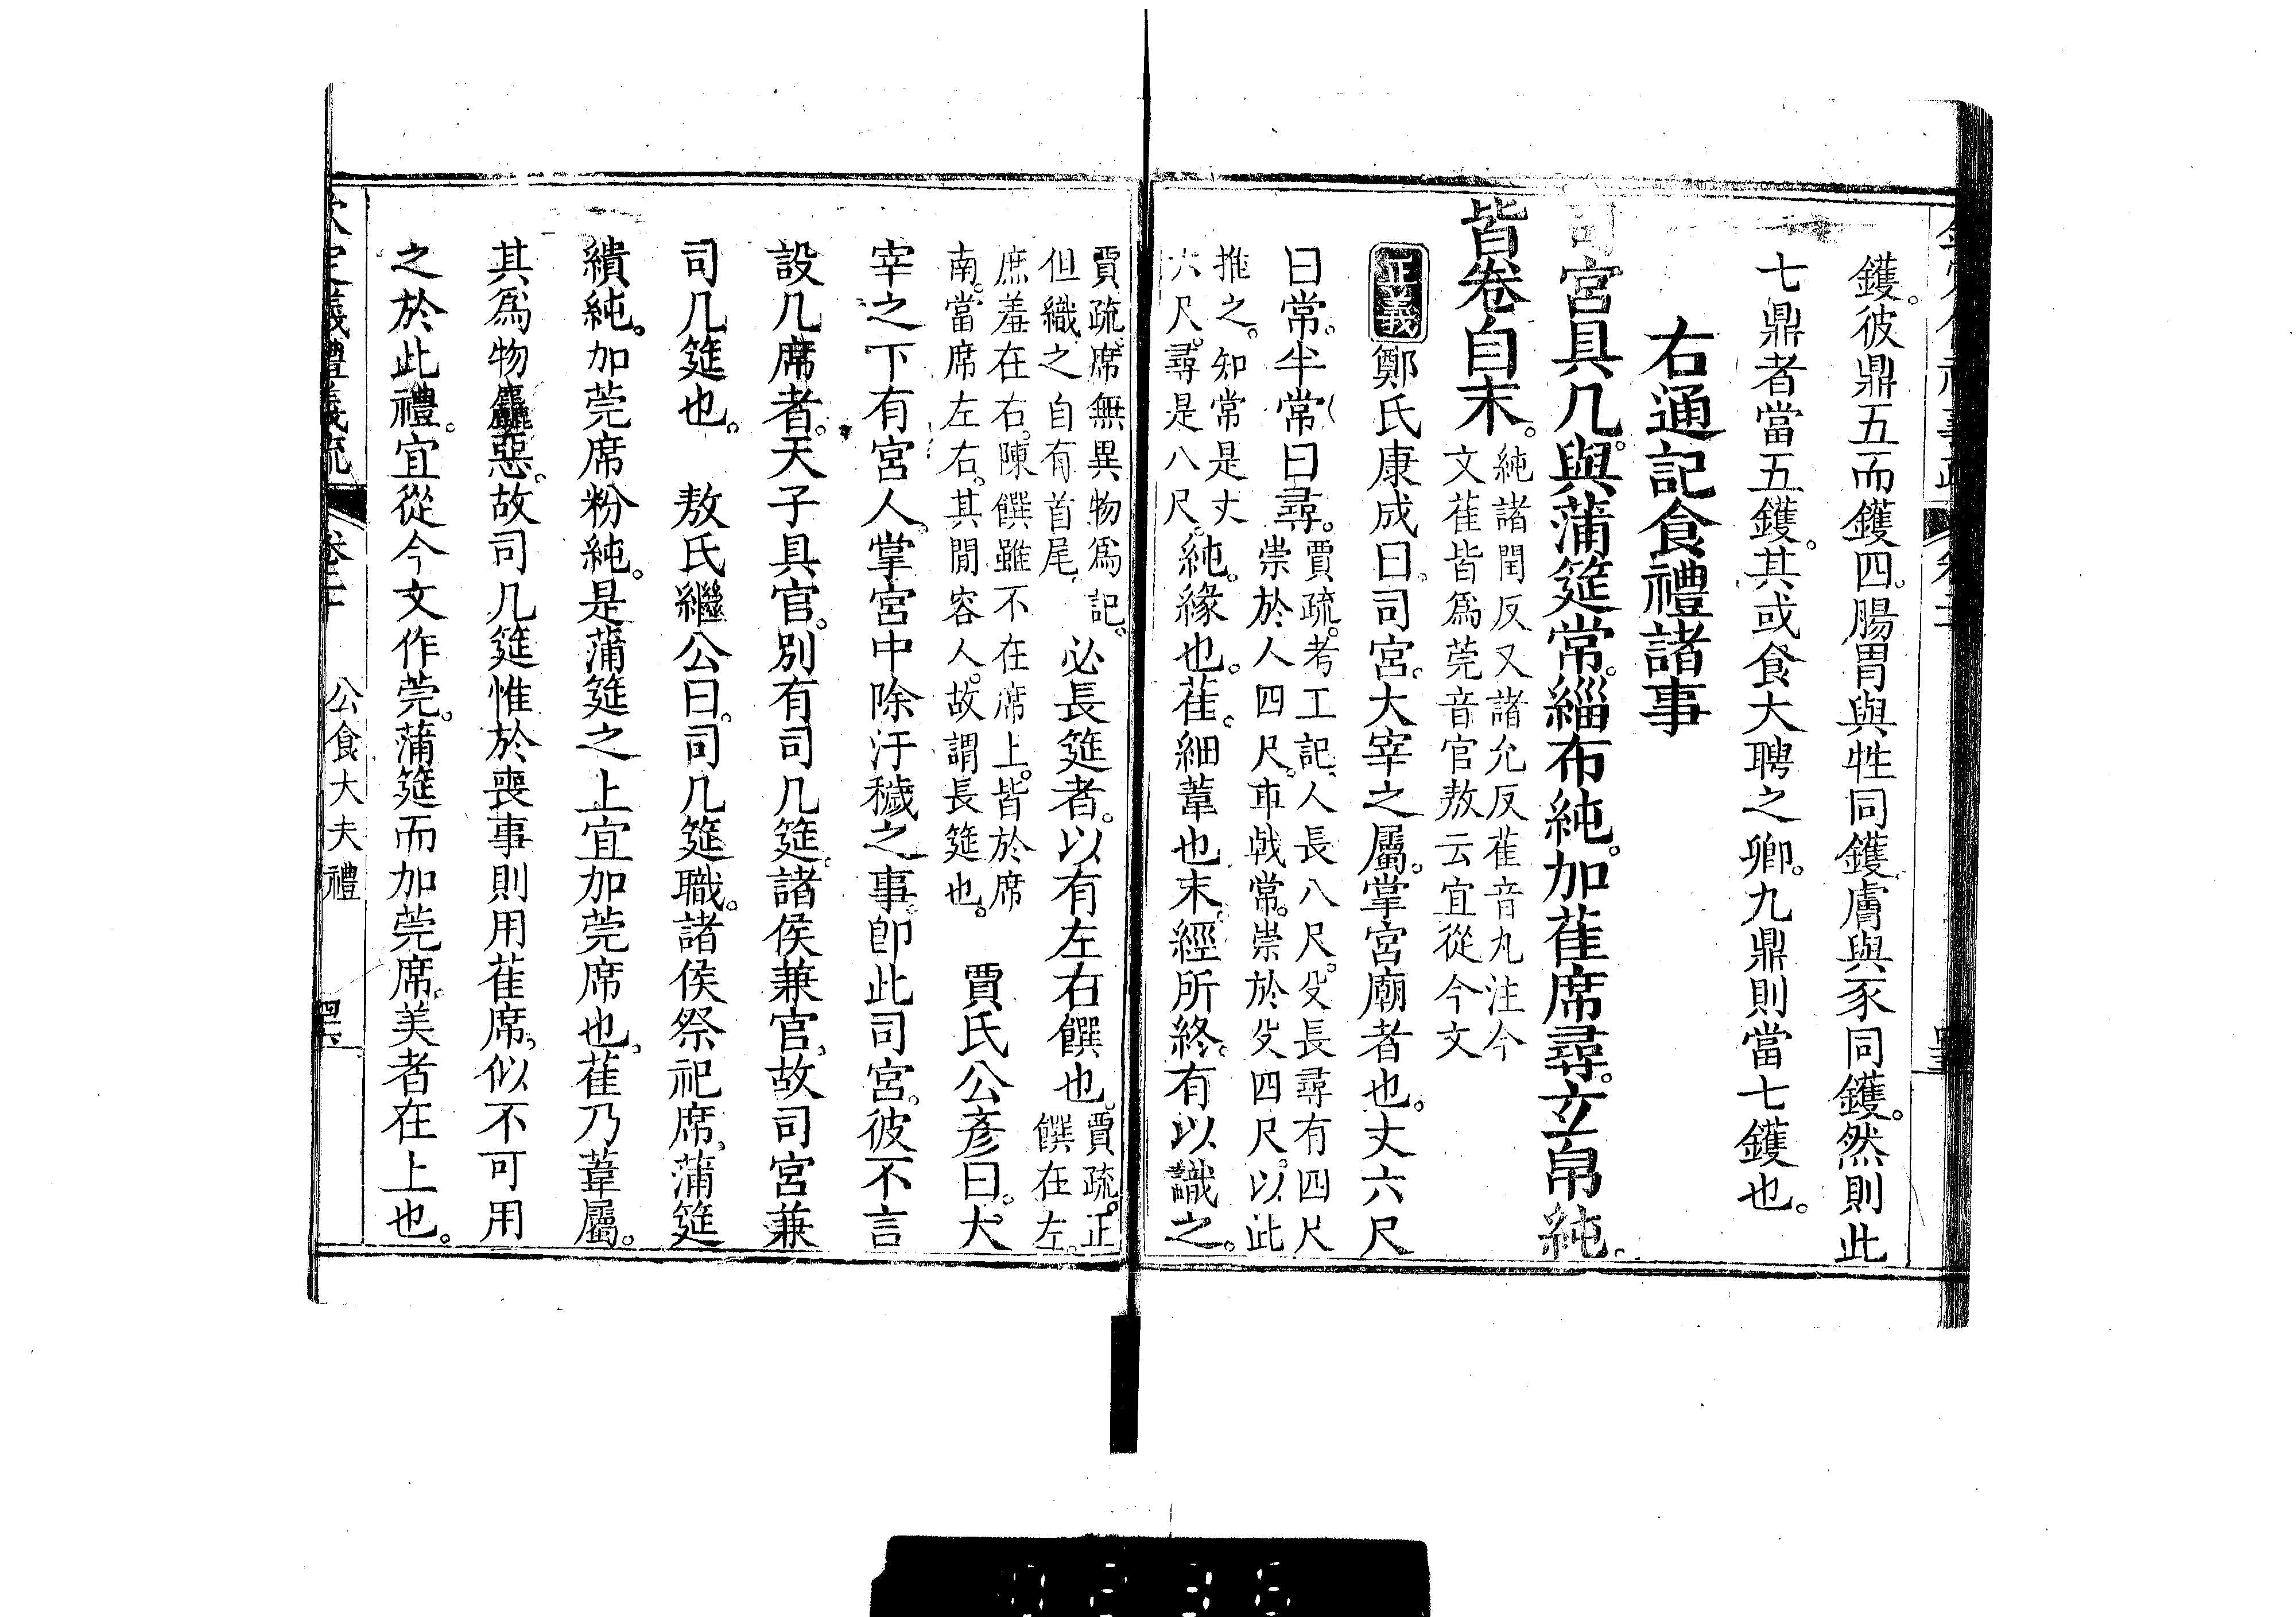 鑊。彼鼎五而鑊四。腸胃與牲同鑊膚與豕同鑊。然則此
七鼎者當五鑊。其或食大聘之卿。九鼎則當七鑊也。
右通記食禮諸事
司宮具几。與蒲筵常。緇布純。加萑席尋。玄帛純。
皆卷自末。
純諸閏反又諸允反萑音丸注今
文萑皆爲莞音官敖云宜從今文
正義 鄭氏康成曰。司宮。大宰之屬。掌宮廟者也。丈六尺
曰常。半常曰尋。
賈疏。考工記。人長八尺。殳長尋有四尺
崇於人四尺。車戟常。崇於殳四尺。以此
推之。知常是丈
六尺。尋是八尺。
純。緣也。萑。細葦也末。經所終。有以識之。
賈疏。席無異物爲記。
但織之自有首尾。
必長筵者。以有左右饌也。
賈疏。正
饌在左。
庶羞在右。陳饌雖不在席上。皆於席
南。當席左右。其間容人。故謂長筵也。
賈氏公彥曰。大
宰之下有宮人。掌宮中除汙穢之事。卽此司宮。彼不言
設几席者。天子具官。別有司几筵。諸侯兼官。故司宮兼
司几筵也。 敖氏繼公曰。司几筵職。諸侯祭祀席。蒲筵
繢純。加莞席粉純。是蒲筵之上宜加莞席也。萑乃葦屬。
其爲物麤惡。故司几筵惟於喪事則用萑席。似不可用
之於此禮。宜從今文作莞。蒲筵而加莞席。美者在上也。
欽定義禮義疏 卷二十 公食大夫禮